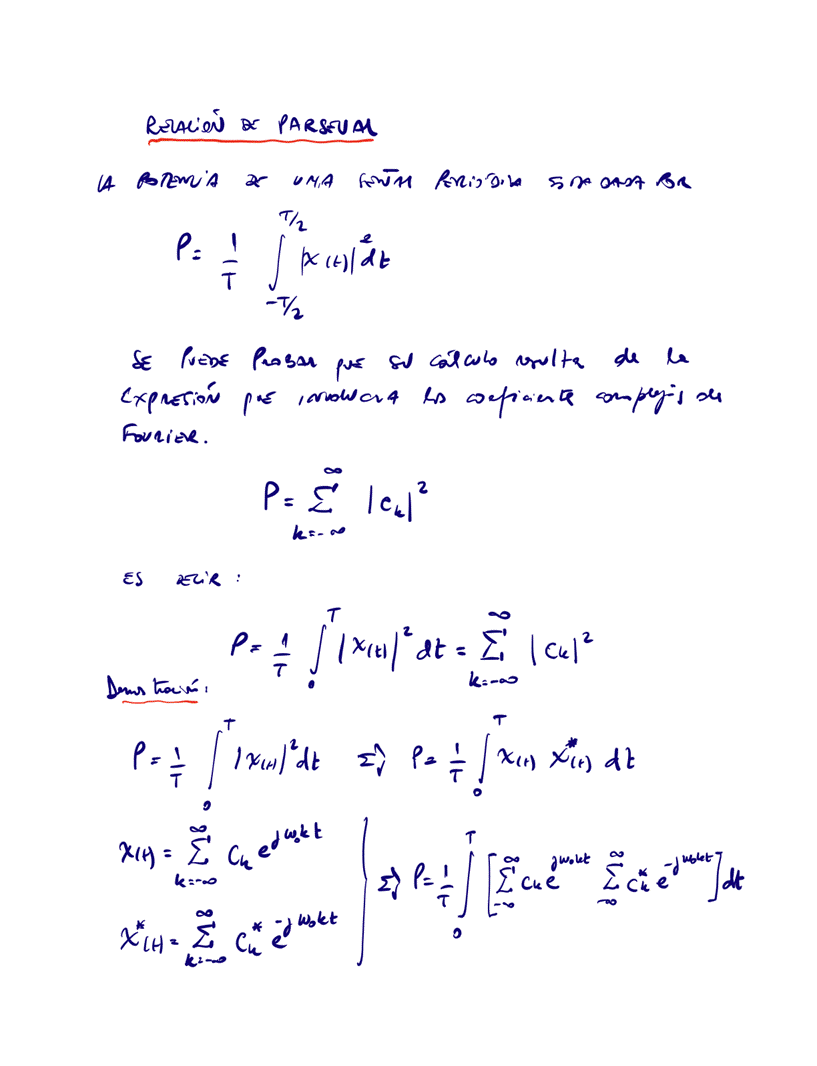 RELACIÓN DE PARSEVAL
LA POTENCIA DE UNA SEÑAL PERIÓDICA ESTA DADA POR
P = 1/T ∫_{-T/2}^{T/2} |x(t)|² dt
SE PUEDE PROBAR QUE SU cálculo resulta de la
EXPRESIÓN QUE INVOLUCRA los coeficiente complejos de
FOURIER.
P = Σ_{k=-∞}^{∞} |c_k|²
ES DECIR :
P = 1/T ∫_0^T |x(t)|² dt = Σ_{k=-∞}^{∞} |c_k|²
Demostración:
P = 1/T ∫_0^T |x(t)|² dt ⇒ P = 1/T ∫_0^T x(t) x*(t) dt
x(t) = Σ_{k=-∞}^{∞} c_k e^{jω₀kt}
⇒ P = 1/T ∫_0^T [Σ_{-∞}^{∞} c_k e^{jω₀kt} Σ_{-∞}^{∞} c_k* e^{-jω₀kt}] dt
x*(t) = Σ_{k=-∞}^{∞} c_k* e^{-jω₀kt}